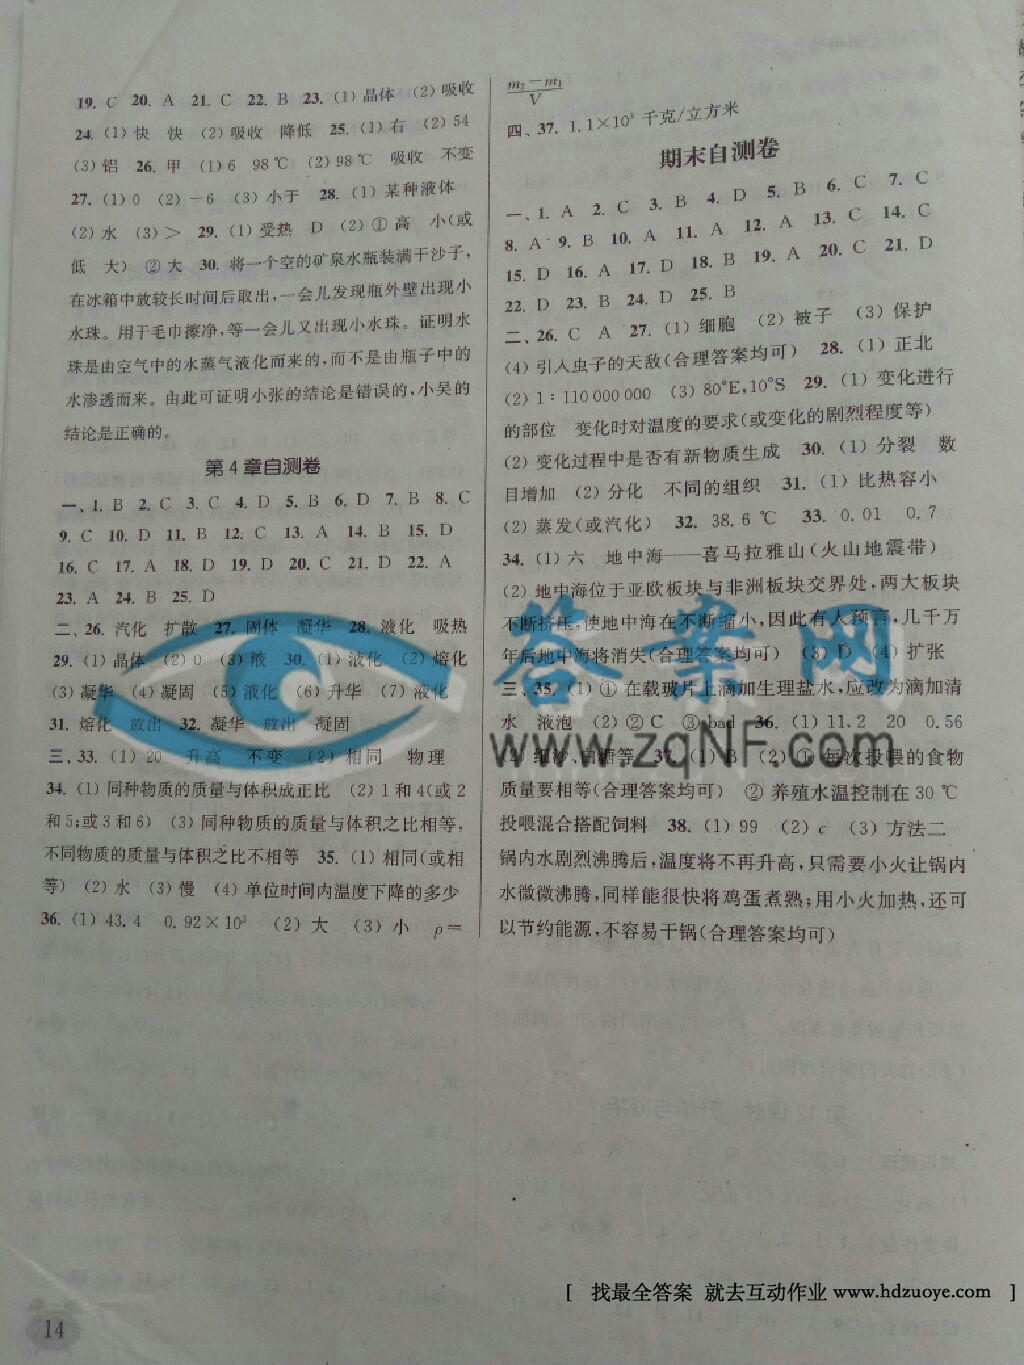 19. C 20. A 21. C 22. B 23. (1) 晶体 (2) 吸收
24. (1) 快 快 (2) 吸收 降低 25. (1) 右 (2) 54
(3) 铝 26. 甲 (1) 6 98℃ (2) 98℃ 吸收 不变
27. (1) 0 (2) －6 (3) 小于 28. (1) 某种液体
(2) 水 (3) ＞ 29. (1) 受热 D (2) ① 高 小(或
低 大) ② 大 30. 将一个空的矿泉水瓶装满干沙子，
在冰箱中放较长时间后取出，一会儿发现瓶外壁出现小
水珠。用干毛巾擦净，等一会儿又出现小水珠。证明水
珠是由空气中的水蒸气液化而来的，而不是由瓶子中的
水渗透而来。由此可证明小张的结论是错误的，小吴的
结论是正确的。
第 4 章自测卷
一、1. B 2. C 3. C 4. D 5. B 6. D 7. B 8. C
9. C 10. D 11. B 12. C 13. A 14. B 15. D
16. C 17. A 18. D 19. D 20. C 21. D 22. A
23. A 24. B 25. D
二、26. 汽化 扩散 27. 固体 凝华 28. 液化 吸热
29. (1) 晶体 (2) 0 (3) 液 30. (1) 液化 (2) 熔化
(3) 凝华 (4) 凝固 (5) 液化 (6) 升华 (7) 液化
31. 熔化 放出 32. 凝华 放出 凝固
三、33. (1) 20 升高 不变 (2) 相同 物理
34. (1) 同种物质的质量与体积成正比 (2) 1 和 4(或 2
和 5；或 3 和 6) (3) 同种物质的质量与体积之比相等，
不同物质的质量与体积之比不相等 35. (1) 相同(或相
等) (2) 水 (3) 慢 (4) 单位时间内温度下降的多少
36. (1) 43. 4 0. 92×10³ (2) 大 (3) 小 ρ＝
(m₂－m₁)/V
四、37. 1. 1×10³ 千克/立方米
期末自测卷
一、1. A 2. C 3. B 4. D 5. B 6. C 7. C
8. A 9. B 10. A 11. A 12. A 13. C 14. C
15. D 16. A 17. D 18. B 19. A 20. C 21. D
22. D 23. B 24. D 25. B
二、26. C A 27. (1) 细胞 (2) 被子 (3) 保护
(4) 引入虫子的天敌(合理答案均可) 28. (1) 正北
(2) 1∶110 000 000 (3) 80°E，10°S 29. (1) 变化进行
的部位 变化时对温度的要求(或变化的剧烈程度等)
(2) 变化过程中是否有新物质生成 30. (1) 分裂 数
目增加 (2) 分化 不同的组织 31. (1) 比热容小
(2) 蒸发(或汽化) 32. 38. 6 ℃ 33. 0. 01 0. 7
34. (1) 六 地中海——喜马拉雅山(火山地震带)
(2) 地中海位于亚欧板块与非洲板块交界处，两大板块
不断挤压，使地中海在不断缩小，因此有人预言，几千万
年后地中海将消失(合理答案均可) (3) D (4) 扩张
三、35. (1) ① 在载玻片上滴加生理盐水，应改为滴加清
水 液泡 (2) ② C ③ bad 36. (1) 11. 2 20 0. 56
(2) 细沙、白糖等 37. (1) B (2) ① 每次投喂的食物
质量要相等(合理答案均可) ② 养殖水温控制在 30 ℃
投喂混合搭配饲料 38. (1) 99 (2) c (3) 方法二
锅内水剧烈沸腾后，温度将不再升高，只需要小火让锅内
水微微沸腾，同样能很快将鸡蛋煮熟；用小火加热，还可
以节约能源，不容易干锅(合理答案均可)
答案网
www.zqNF.com
[ 找最全答案 就去互动作业 www.hdzuoye.com ]
14